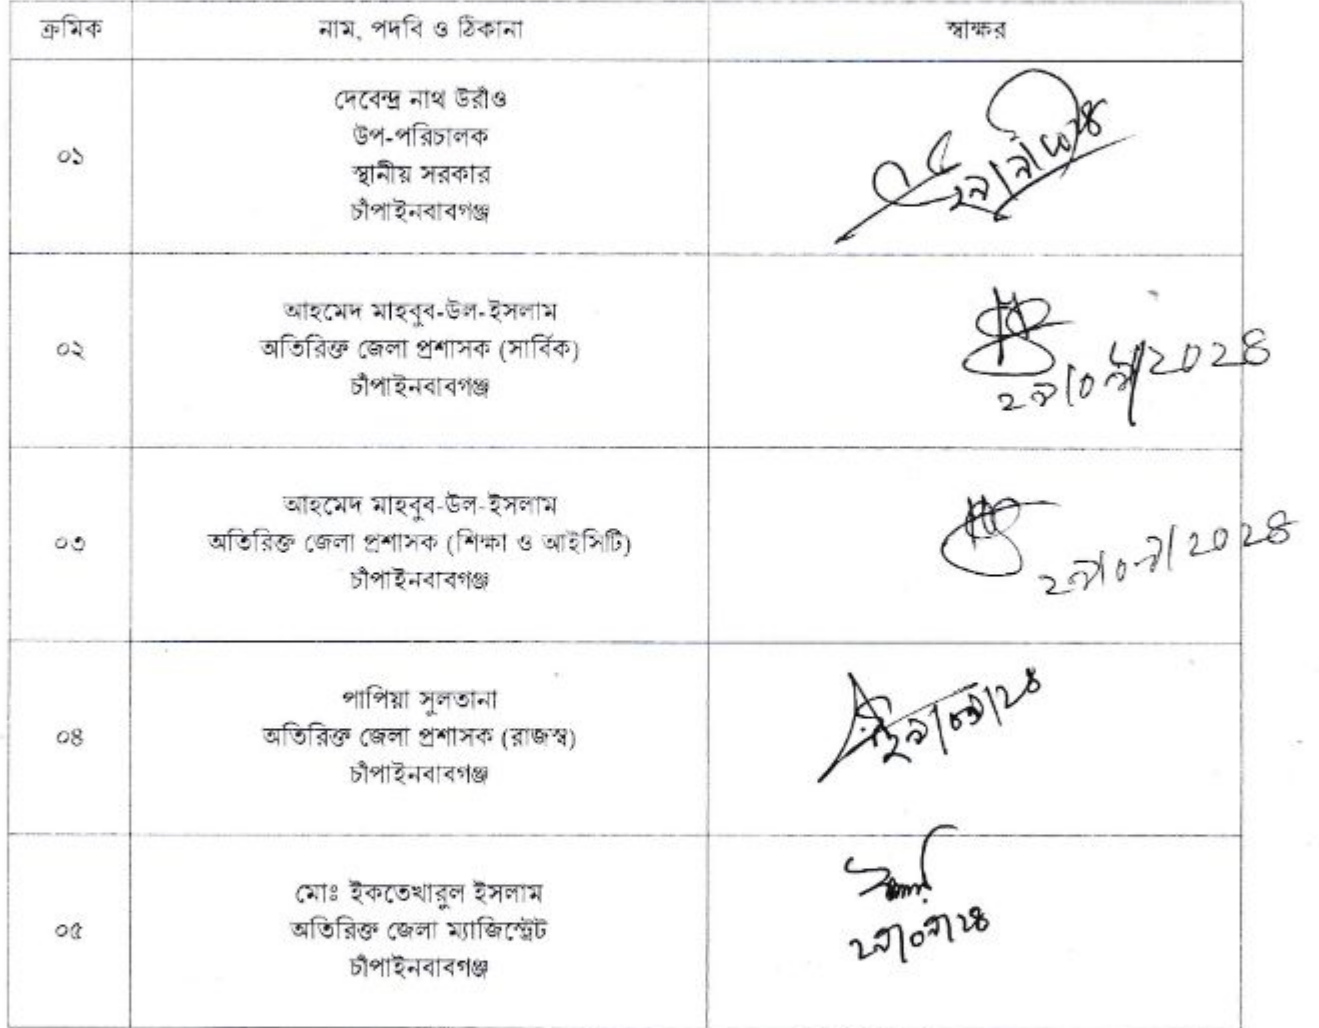 ক্রমিক নাম, পদবি ও ঠিকানা স্বাক্ষর
দেবেন্দ্র নাথ উরাঁও
উপ-পরিচালক
০১
স্থানীয় সরকার
চাঁপাইনবাবগঞ্জ
২৯/৯/২০২৪
আহমেদ মাহবুব-উল-ইসলাম
০২ অতিরিক্ত জেলা প্রশাসক (সার্বিক)
চাঁপাইনবাবগঞ্জ
২৯/০৯/২০২৪
আহমেদ মাহবুব-উল-ইসলাম
০৩ অতিরিক্ত জেলা প্রশাসক (শিক্ষা ও আইসিটি)
চাঁপাইনবাবগঞ্জ
২৯/০৯/২০২৪
পাপিয়া সুলতানা
০৪ অতিরিক্ত জেলা প্রশাসক (রাজস্ব)
চাঁপাইনবাবগঞ্জ
২৯/০৯/২৪
মোঃ ইকতেখারুল ইসলাম
০৫ অতিরিক্ত জেলা ম্যাজিস্ট্রেট
চাঁপাইনবাবগঞ্জ
২৯/০৯/২৪